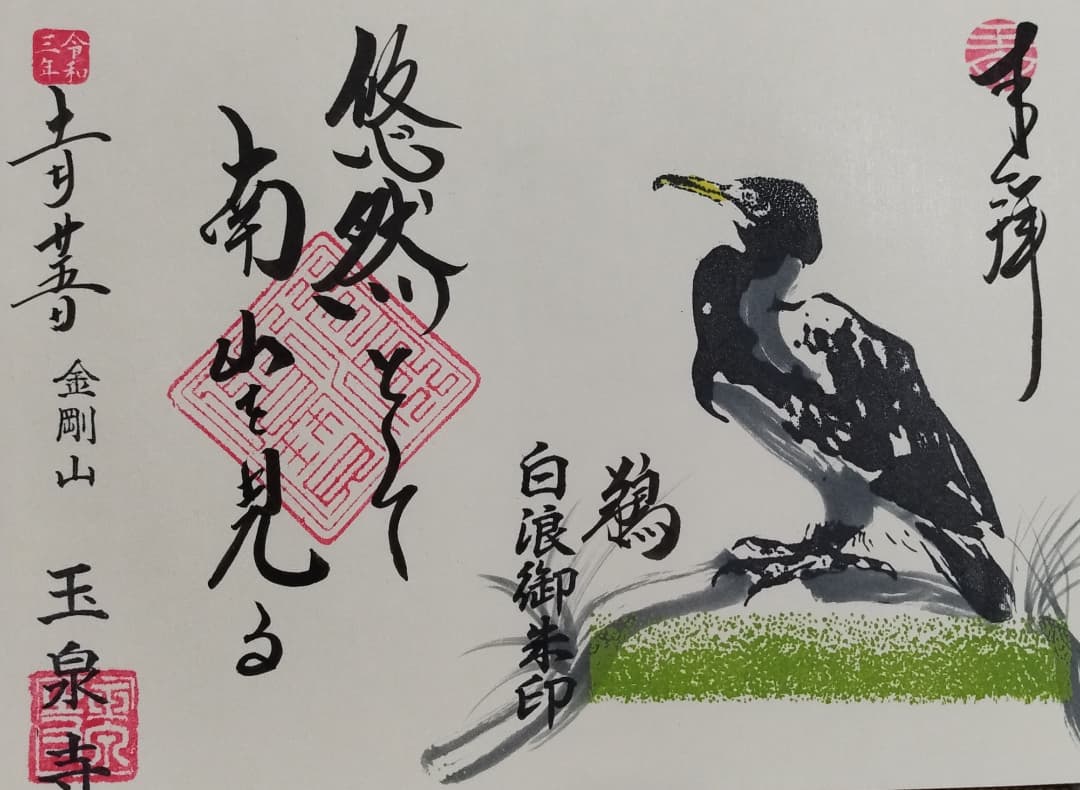 奉拝
鵜
白浪御朱印
悠然として
南山を見る
令和三年
十一月廿五日
金剛山 玉泉寺